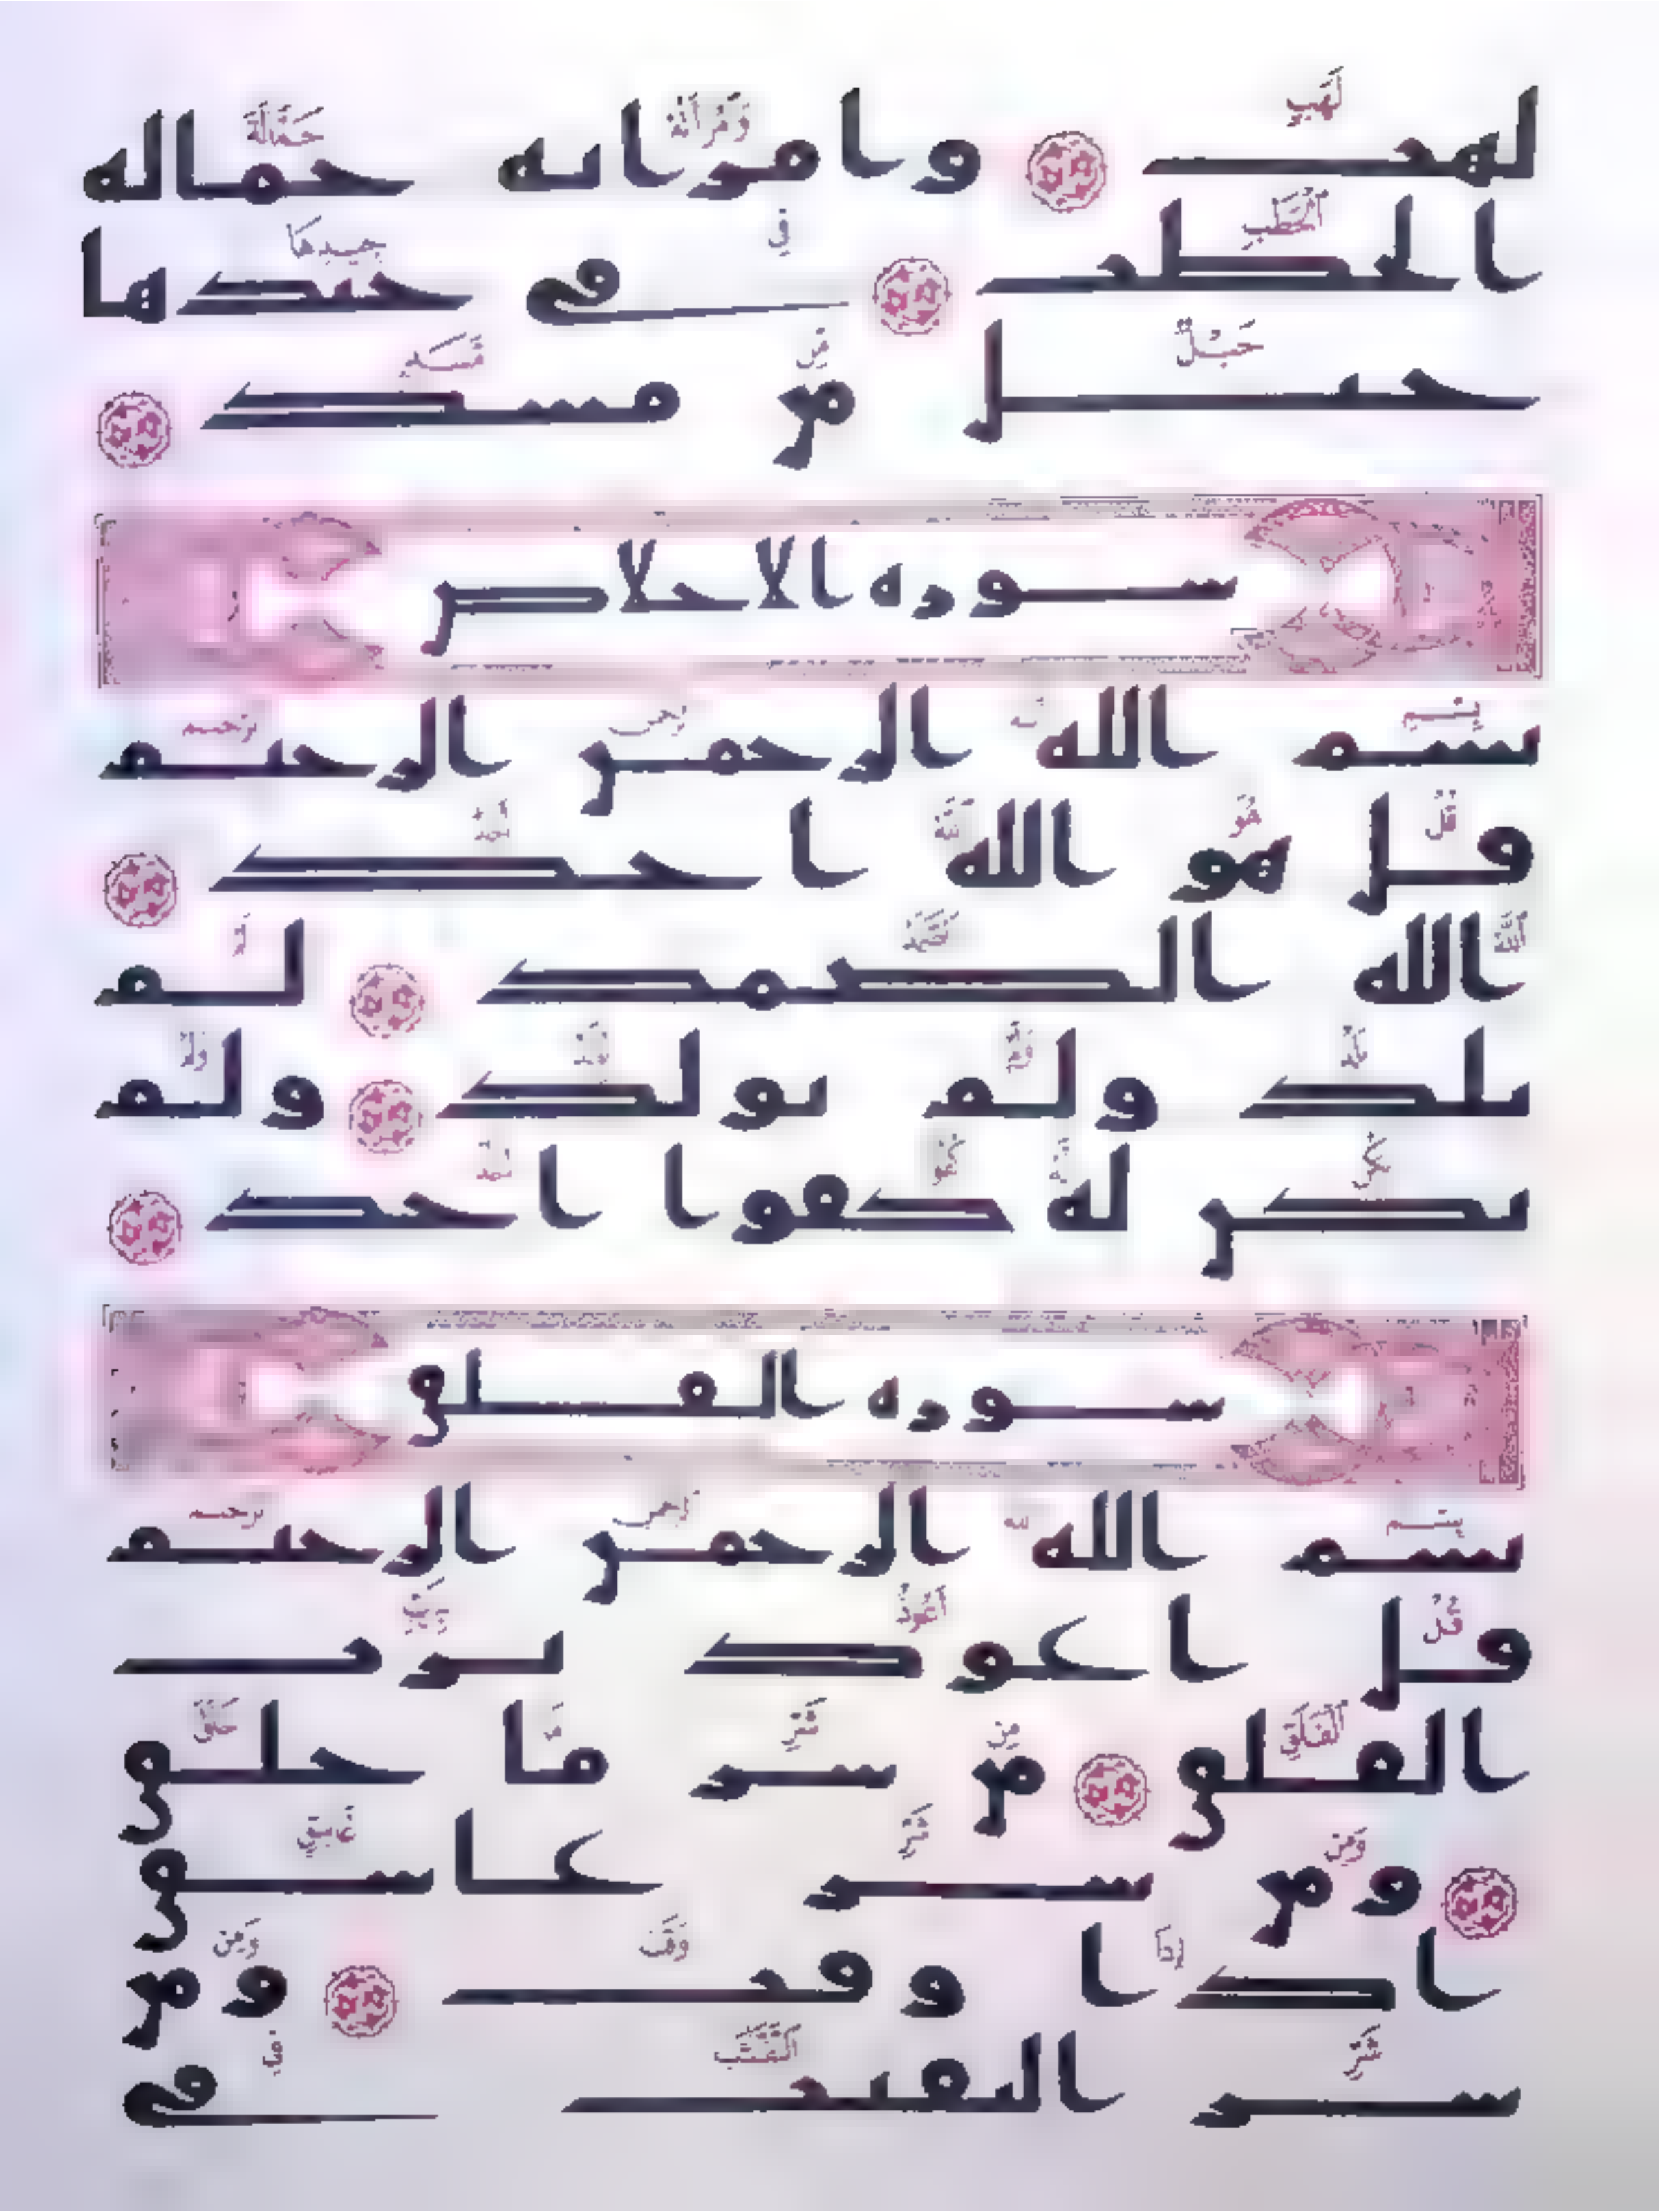 لهب وامراته حماله
الحطب في جيدها
حبل من مسد
سورة الاخلاص
بسم الله الرحمن الرحيم
قل هو الله احد
الله الصمد لم
يلد ولم يولد ولم
يكن له كفوا احد
سورة الفلق
بسم الله الرحمن الرحيم
قل اعوذ برب
الفلق من شر ما خلق
ومن شر غاسق
اذا وقب ومن
شر النفثت في